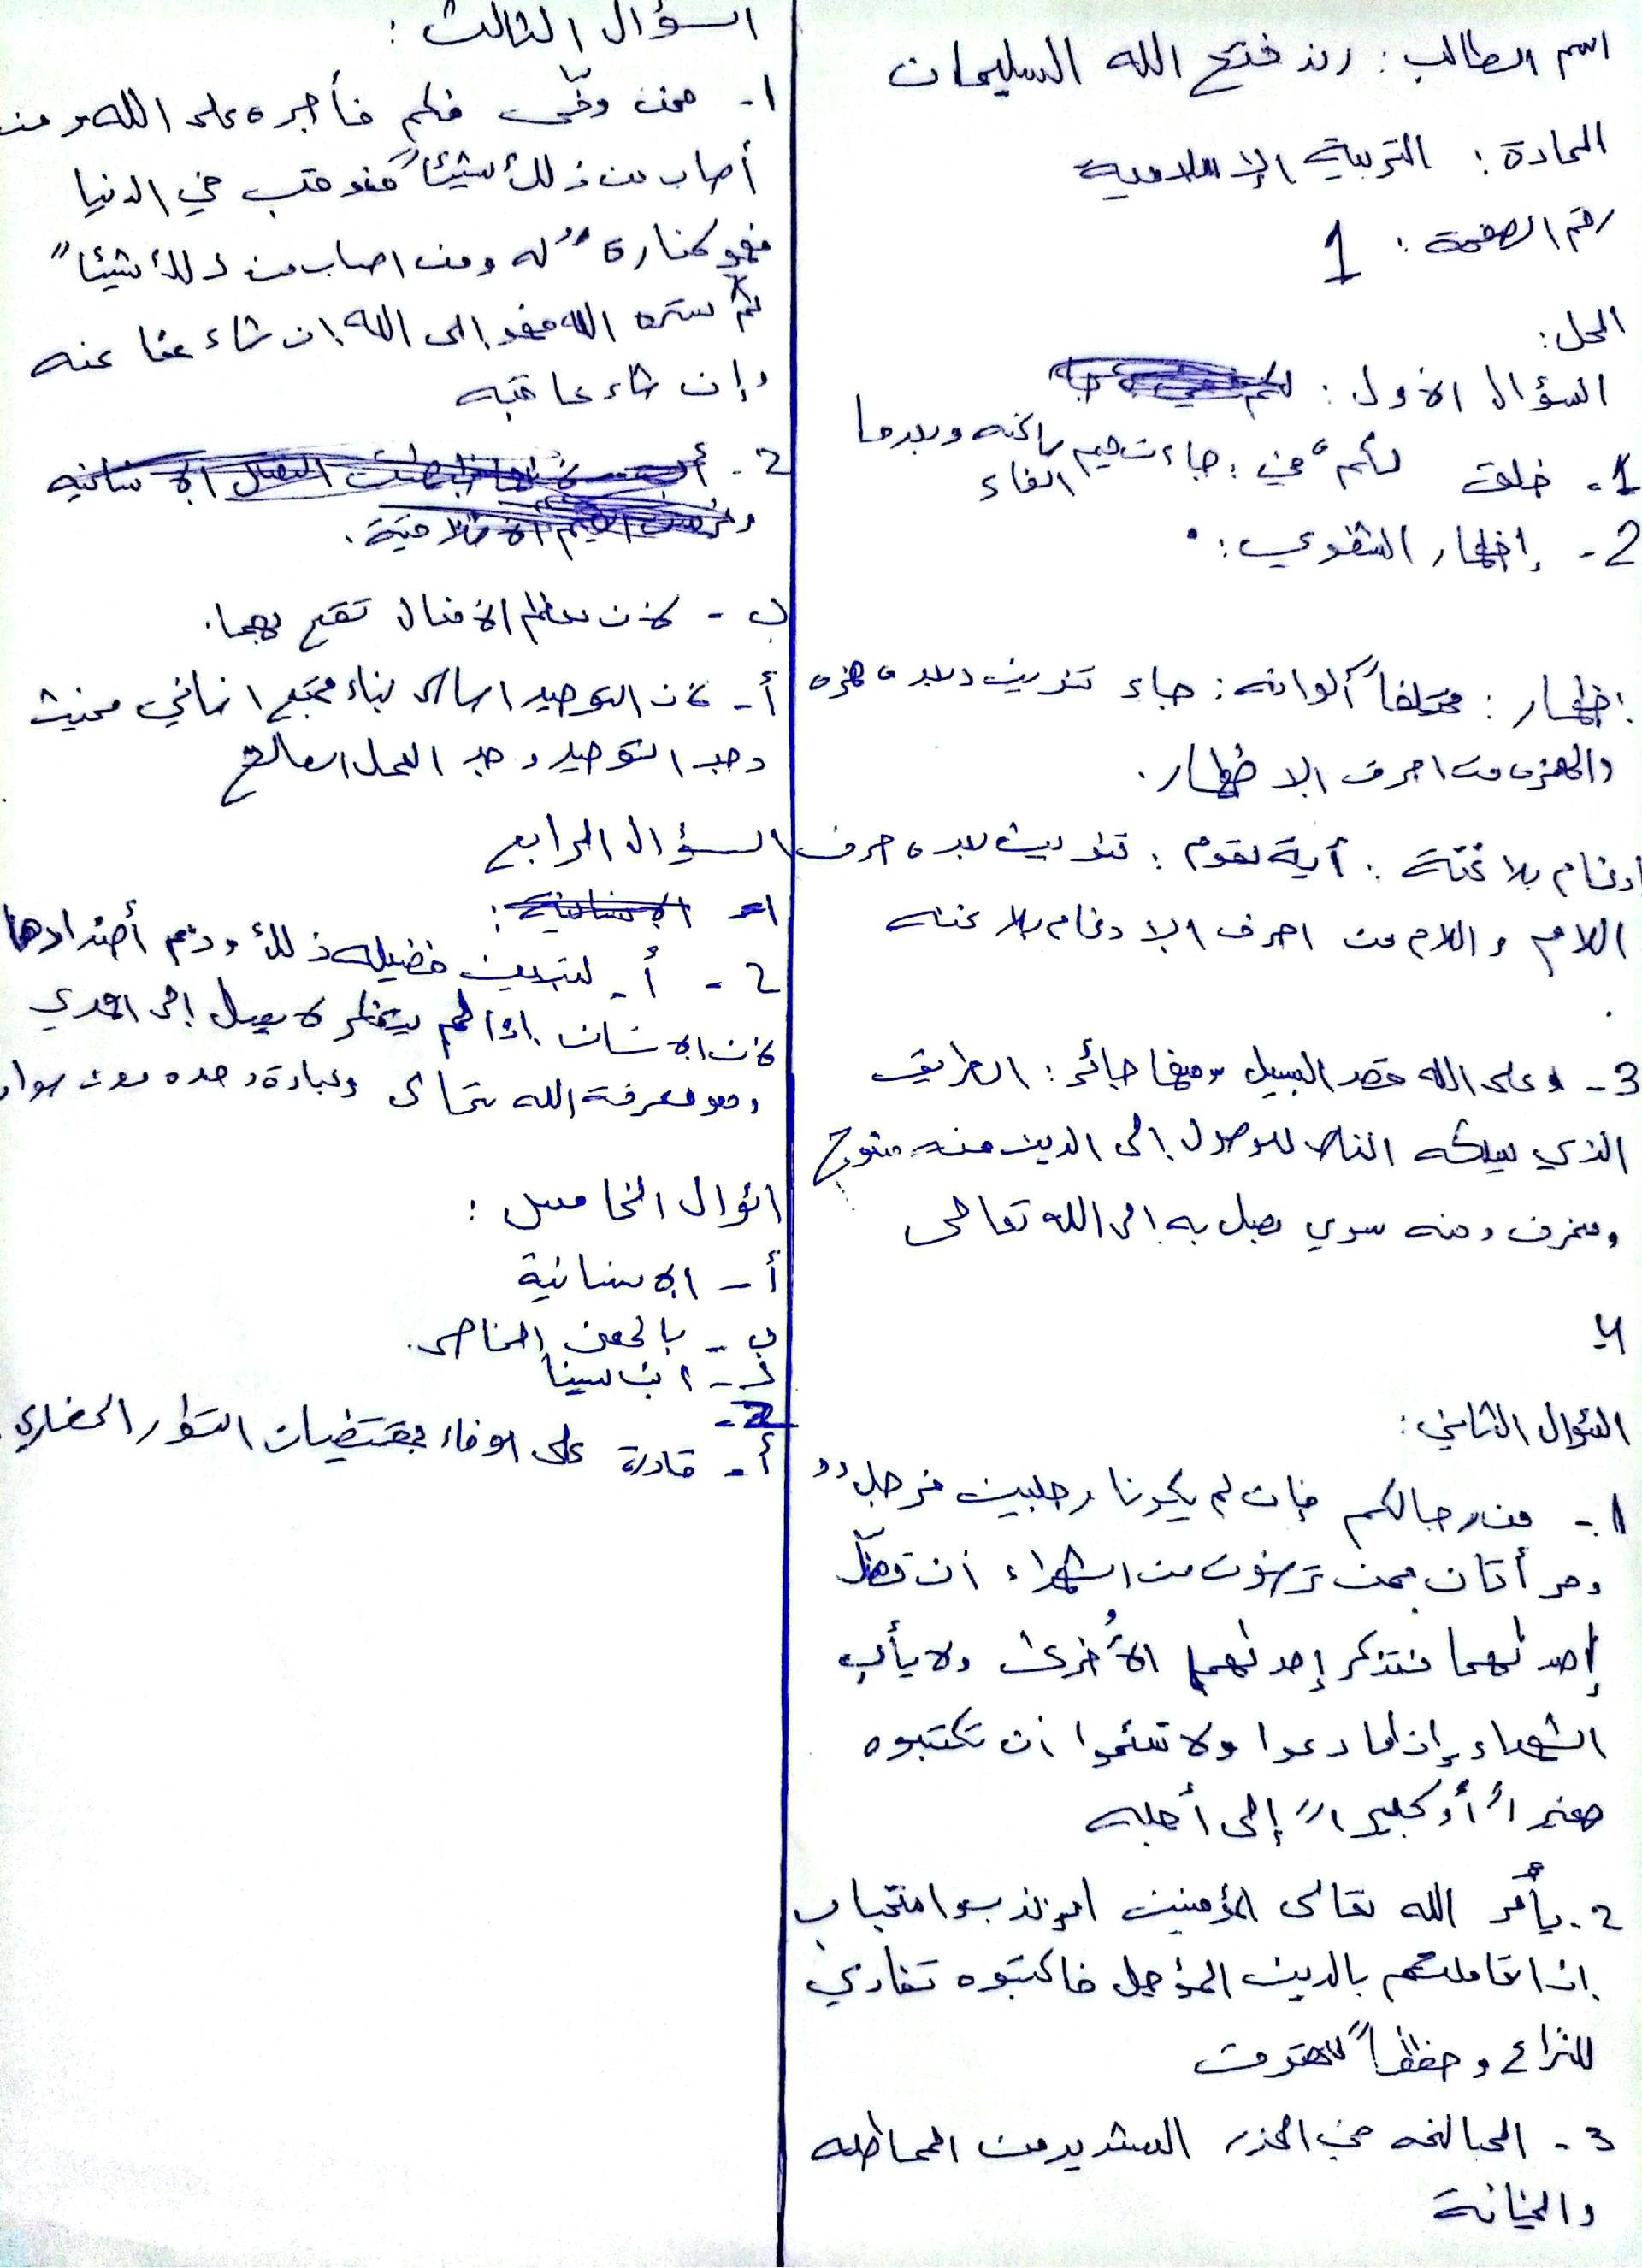 اسم الطالب: رند فتح الله السليمان
المادة: التربية الإسلامية
رقم الصفحة: 1
الحل:
السؤال الأول:
1- خلق لكم في: جاءت ميم ساكنة وبعدها
الفاء
2- إظهار الشفوي:
إظهار: مختلفاً ألوانه: جاء تنوين وبعده همزة
والهمزة من احرف الإظهار.
ادغام بلا غنّة: آية لقوم: تنوين بعده حرف
اللام واللام من احرف الإدغام بلا غنه
3- وعلى الله قصد السبيل ومنها جائر: الطريق
الذي يسلكه الناس للوصول إلى الدين منه
ومنحرف ومنه سوي يصل به إلى الله تعالى
السؤال الثاني:
1- من رجالكم فإن لم يكونا رجلين فرجل
وامرأتان ممن ترضون من الشهداء أن تضلّ
إحدىهما فتذكر إحدىهما الأُخرى ولا يأب
الشهداء إذا ما دعوا ولا تسئموا أن تكتبوه
صغيراً أو كبيراً إلى أجله
2- يأمر الله تعالى المؤمنين
إذا تعاملتم بالدين المؤجل فاكتبوه تفادي
للنزاع وحفظاً
3- المبالغه في الحذر الشديد من المماطله
والخيانة
السؤال الثالث:
1- فمن وفّى منكم فأجره على الله ومن
أصاب من ذلك شيئاً فعوقب في الدنيا
فهو كفارة له ومن اصاب من ذلك شيئاً
ثم ستره الله فهو إلى الله إن شاء عفا عنه
وإن شاء عاقبه
2-
ب- لأن معظم الأفعال تقع بهما.
أ- لأن التوحيد اساس بناء مجتمع انساني فحيث
وجد التوحيد وجد العمل الصالح
السؤال الرابع
1- الإنسانية:
2- أ- لتبيين فضيله ذلك وذم أضدادها
لأن الإنسان إذا لم يتفكر لا يصل إلى الهدي
وهو معرفة الله تعالى وعبادة وحده دون سواه
السؤال الخامس:
أ- الإنسانية
ب- بالحصن الناصر.
د- ابن سينا
2-
أ- قادرة على الوفاء بمقتضيات التطور الحضاري.